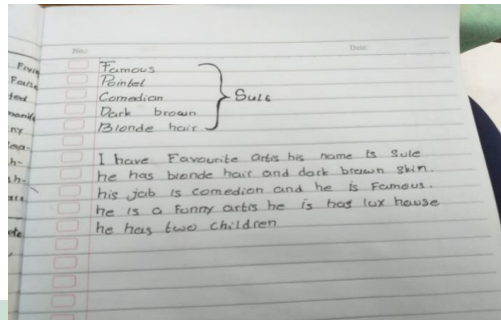 No.:
Date:
Famous
Pointel
Comedion
Dark brown
Blonde hair
Sule
I have Favourite artis his name is Sule
he has blonde hair and dark brown skin.
his job is comedion and he is Famous.
he is a Funny artis he is has lux house
he has two children